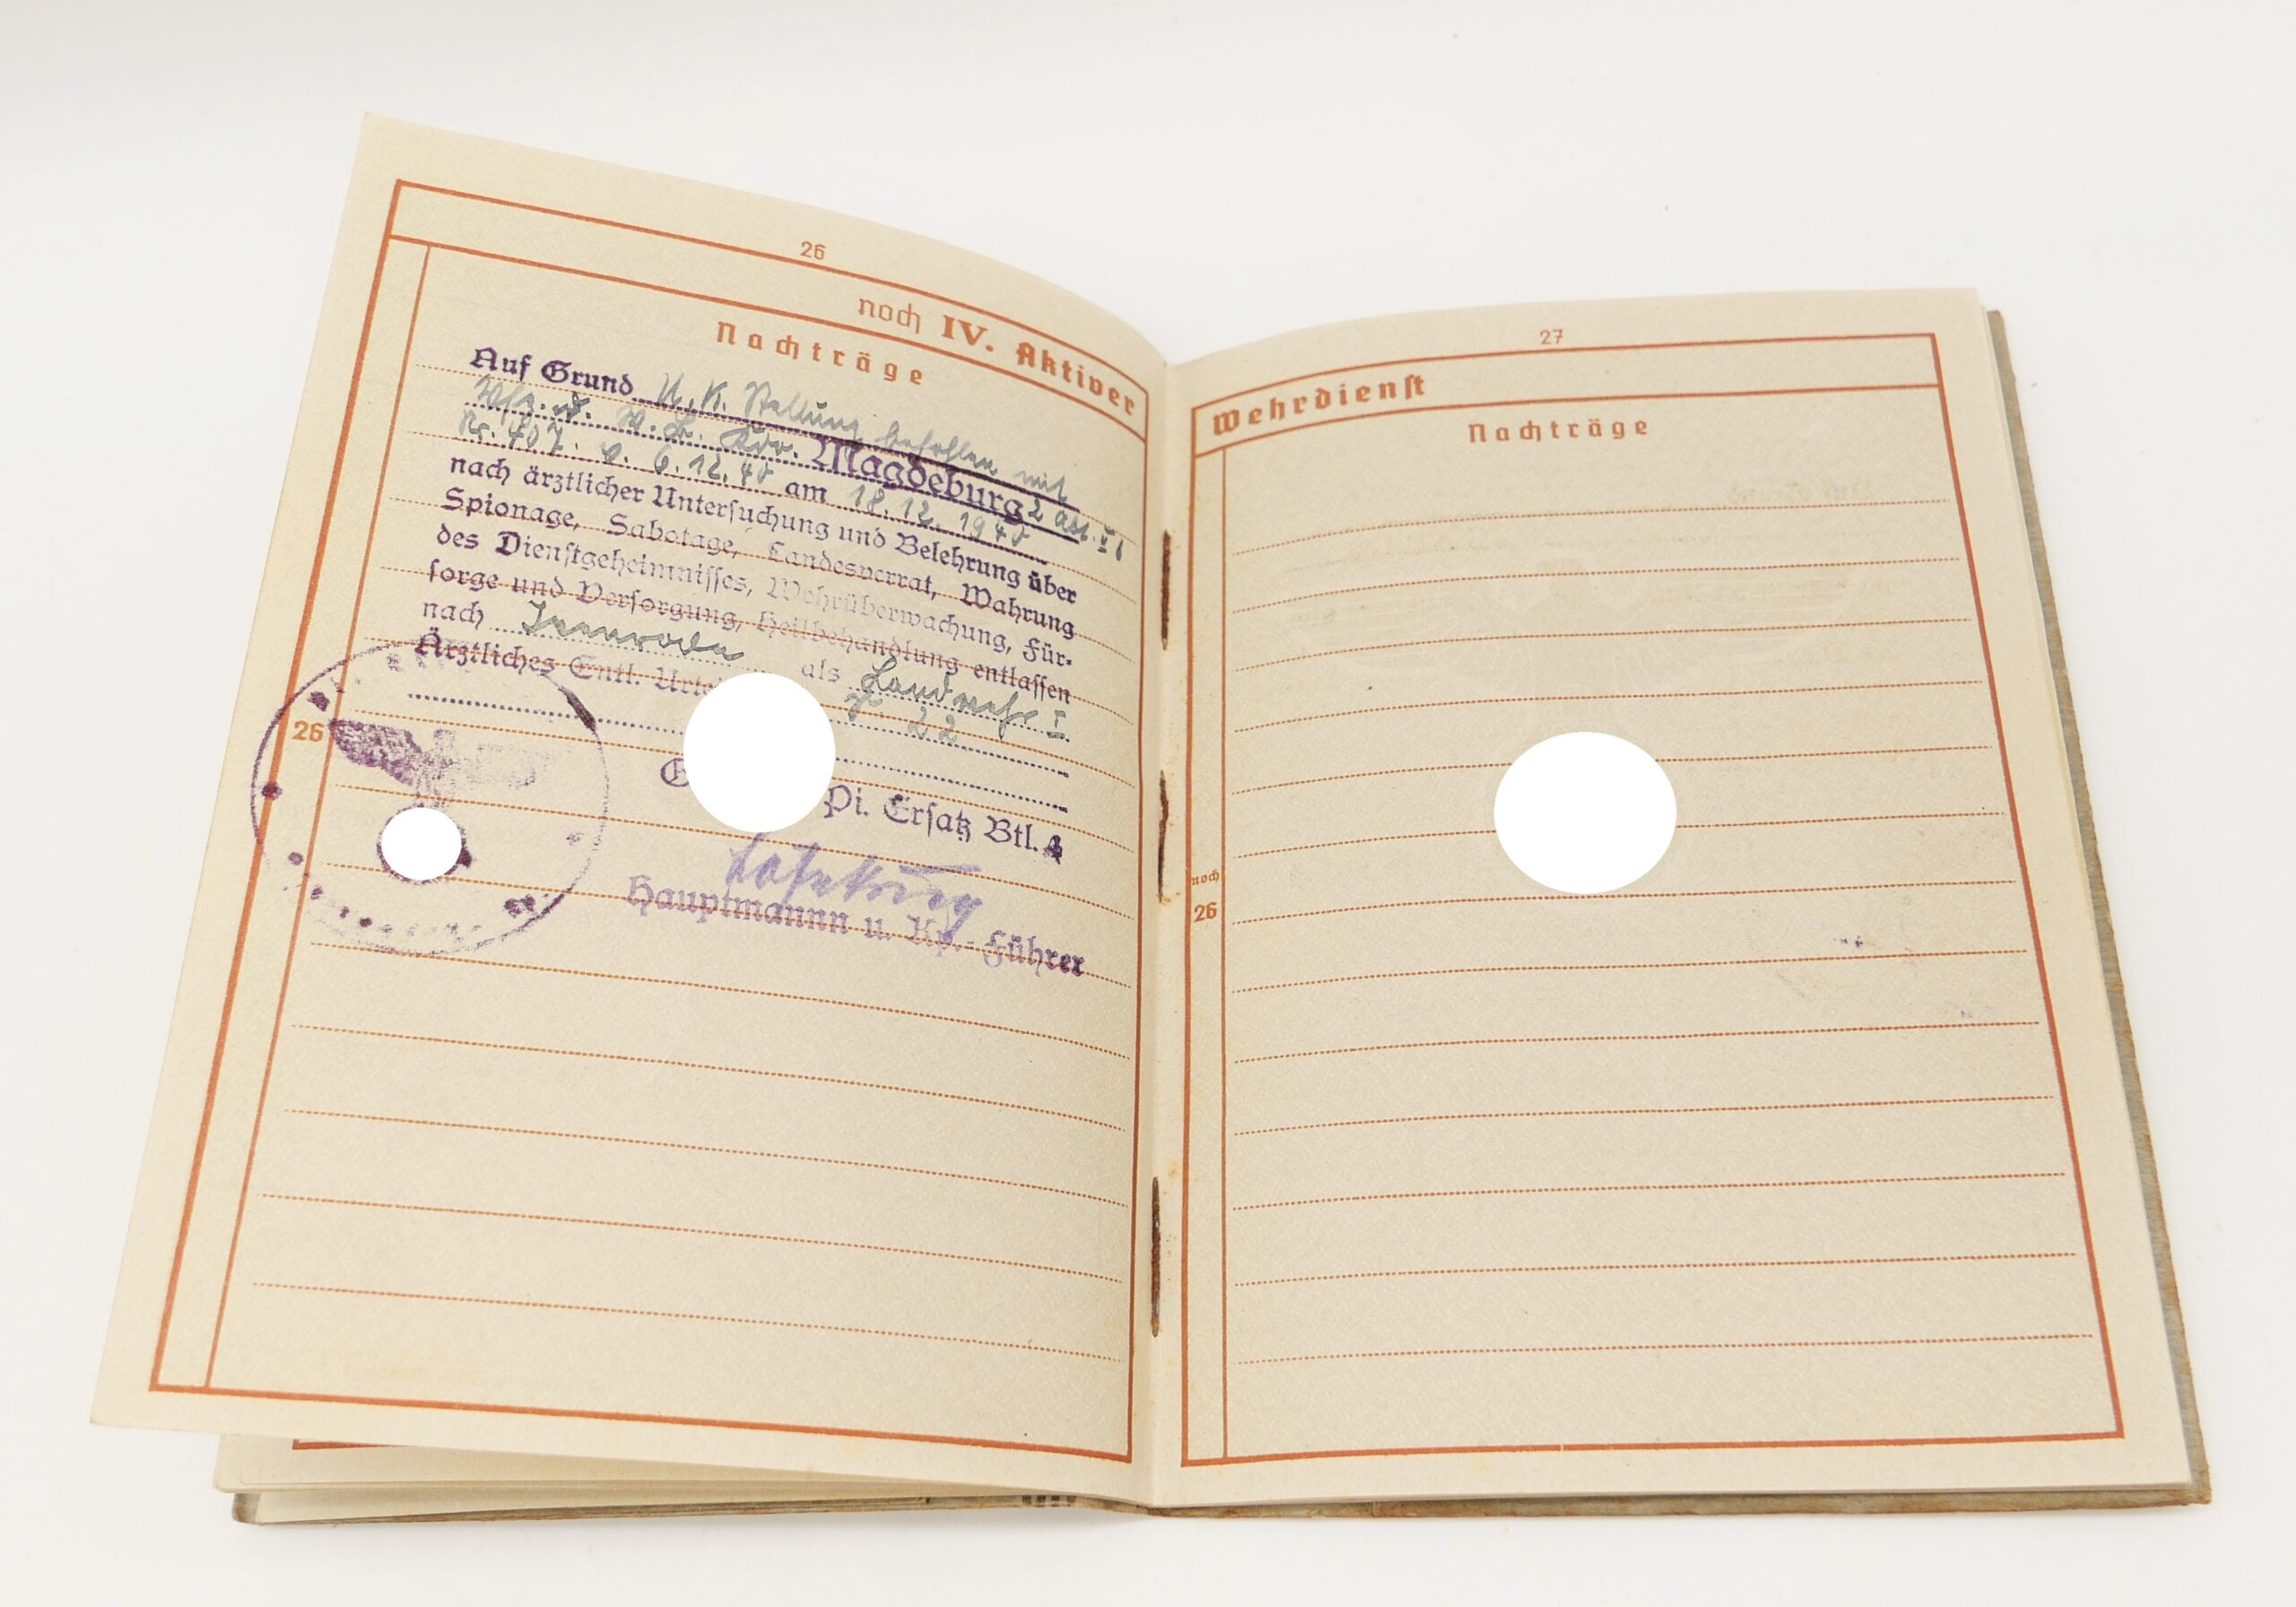 26
noch IV. Aktiver
Nachträge
Auf Grund U. K. Stellung befohlen mit
Magdeburg 2 Abt.
Nr. 407. v. 6.12.40 am 18.12.1940
nach ärztlicher Untersuchung und Belehrung über
Spionage, Sabotage, Landesverrat, Wahrung
des Dienstgeheimnisses, Wehrüberwachung, Für-
sorge und Versorgung, Heilbehandlung entlassen
nach als Landwehr I
Ärztliches Entl. 22
26
Pi. Ersatz Btl. 4
Hauptmannn u. Kp.-Führer
27
Wehrdienst
Nachträge
noch
26